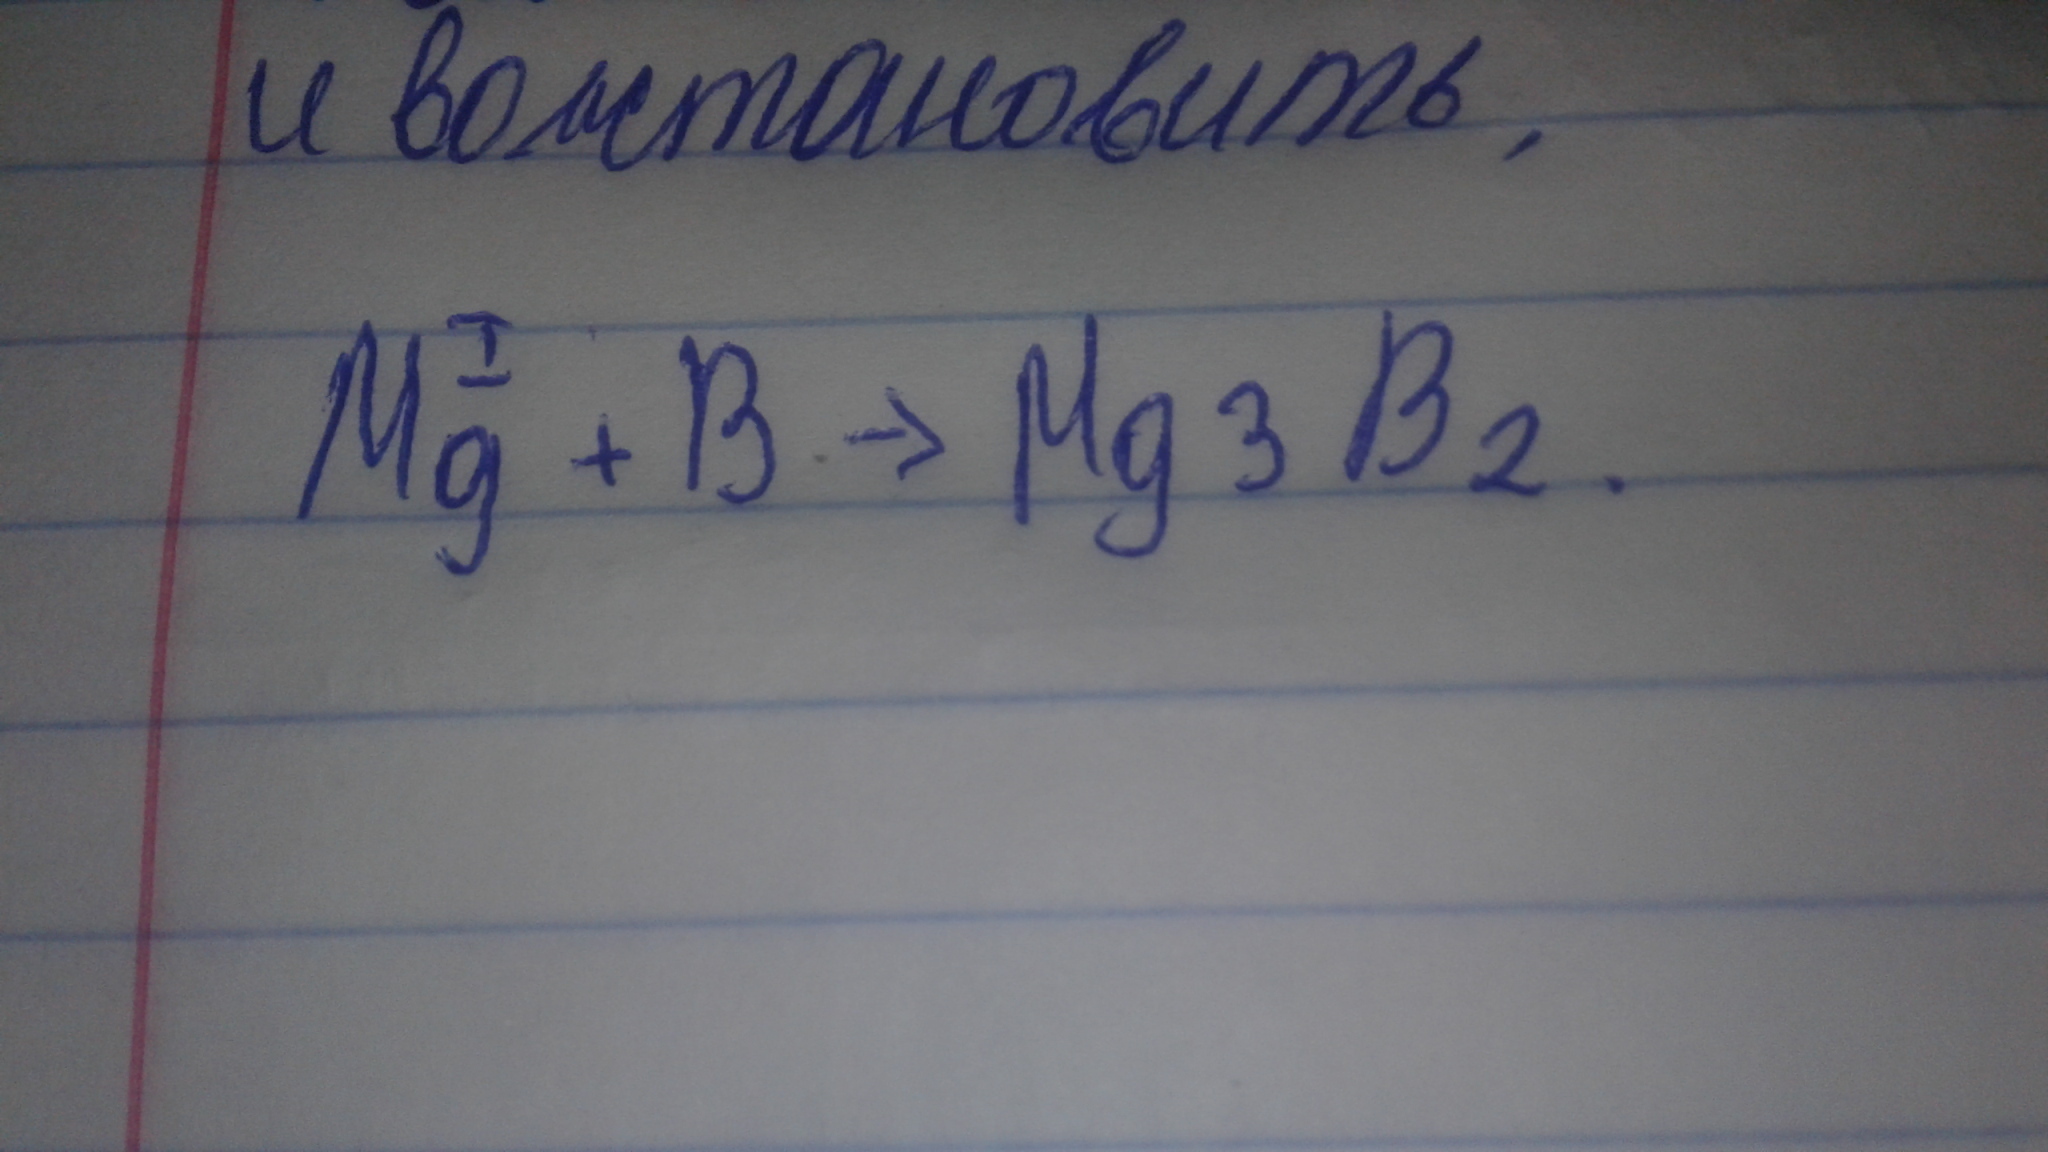 и востановить,
Mg I + B → Mg3B2.